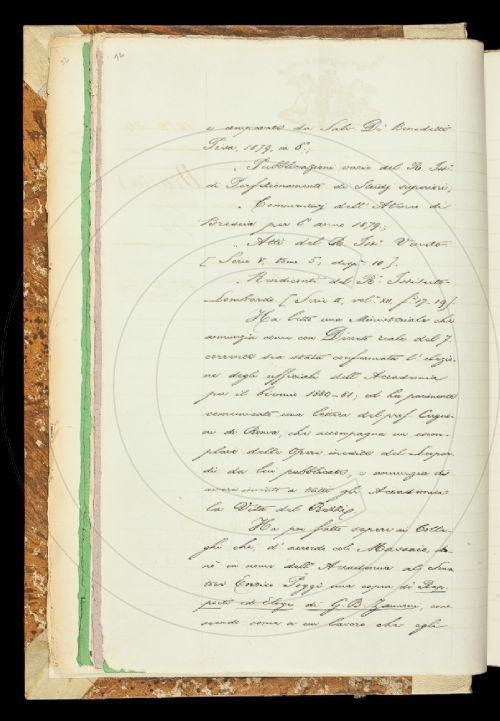 e comparato da Salv. De Benedetti
Pisa, 1879, in 8°;
„ Pubblicazioni varie del R. Ist.
di Perfezionamento di Studj superiori;
„ Commentarj dell'Ateneo di
Brescia per l'anno 1879;
„ Atti del R. Ist. Veneto
[Serie V, tomo 5, disp. 10].
„ Rendiconti del R. Istituto
Lombardo [Serie II, vol. XII, f. 17-19].
Ha letto una Ministeriale che
annunzia come con Decreto reale del 7.
corrente sia stata confermata l'elezio-
ne degli ufficiali dell'Accademia
per il biennio 1880-81; ed ha parimente
comunicato una lettera del prof. Cugno-
ni di Roma, che accompagna un esem-
plare delle Opere inedite del Leopar-
di da lui pubblicate, e annunzia di
avere inviato a tutti gli Accademici
la Vita del
Ha poi fatto sapere ai Colle-
ghi che, d'accordo col Massaio, do-
nò in nome dell'Accademia al Sena-
tore Enrico Poggi una copia di Rap-
porti ed Elogi di G. B. Zannoni, come
quando come a un lavoro che egli